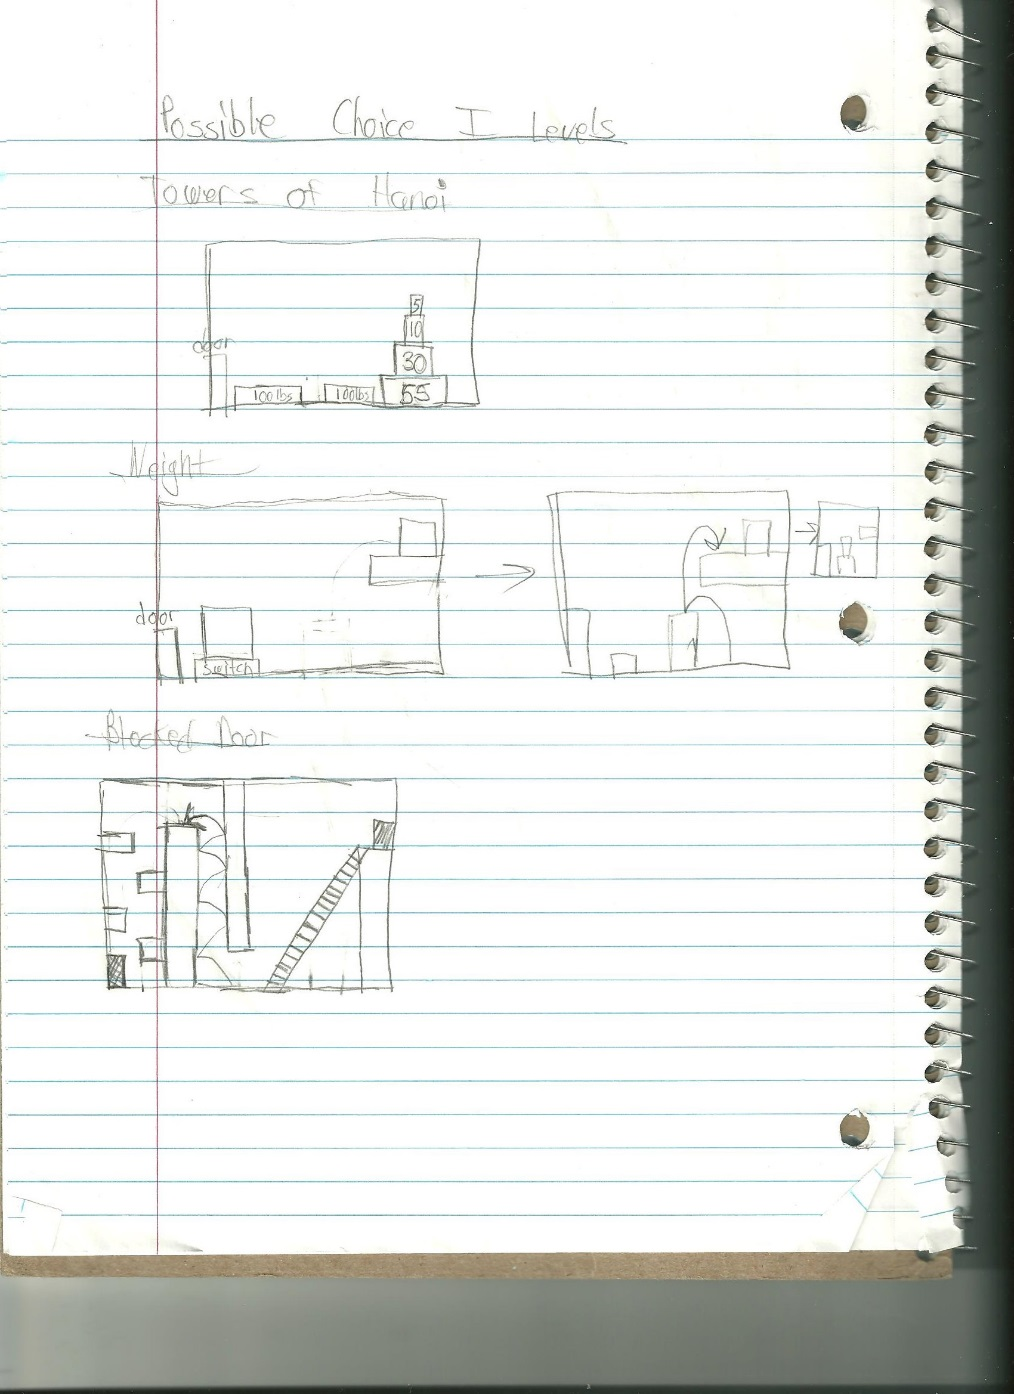 Possible Choice I Levels
Towers of Hanoi
5
10
door
30
100lbs 100lbs 55
Weight
door
switch
Blocked Door